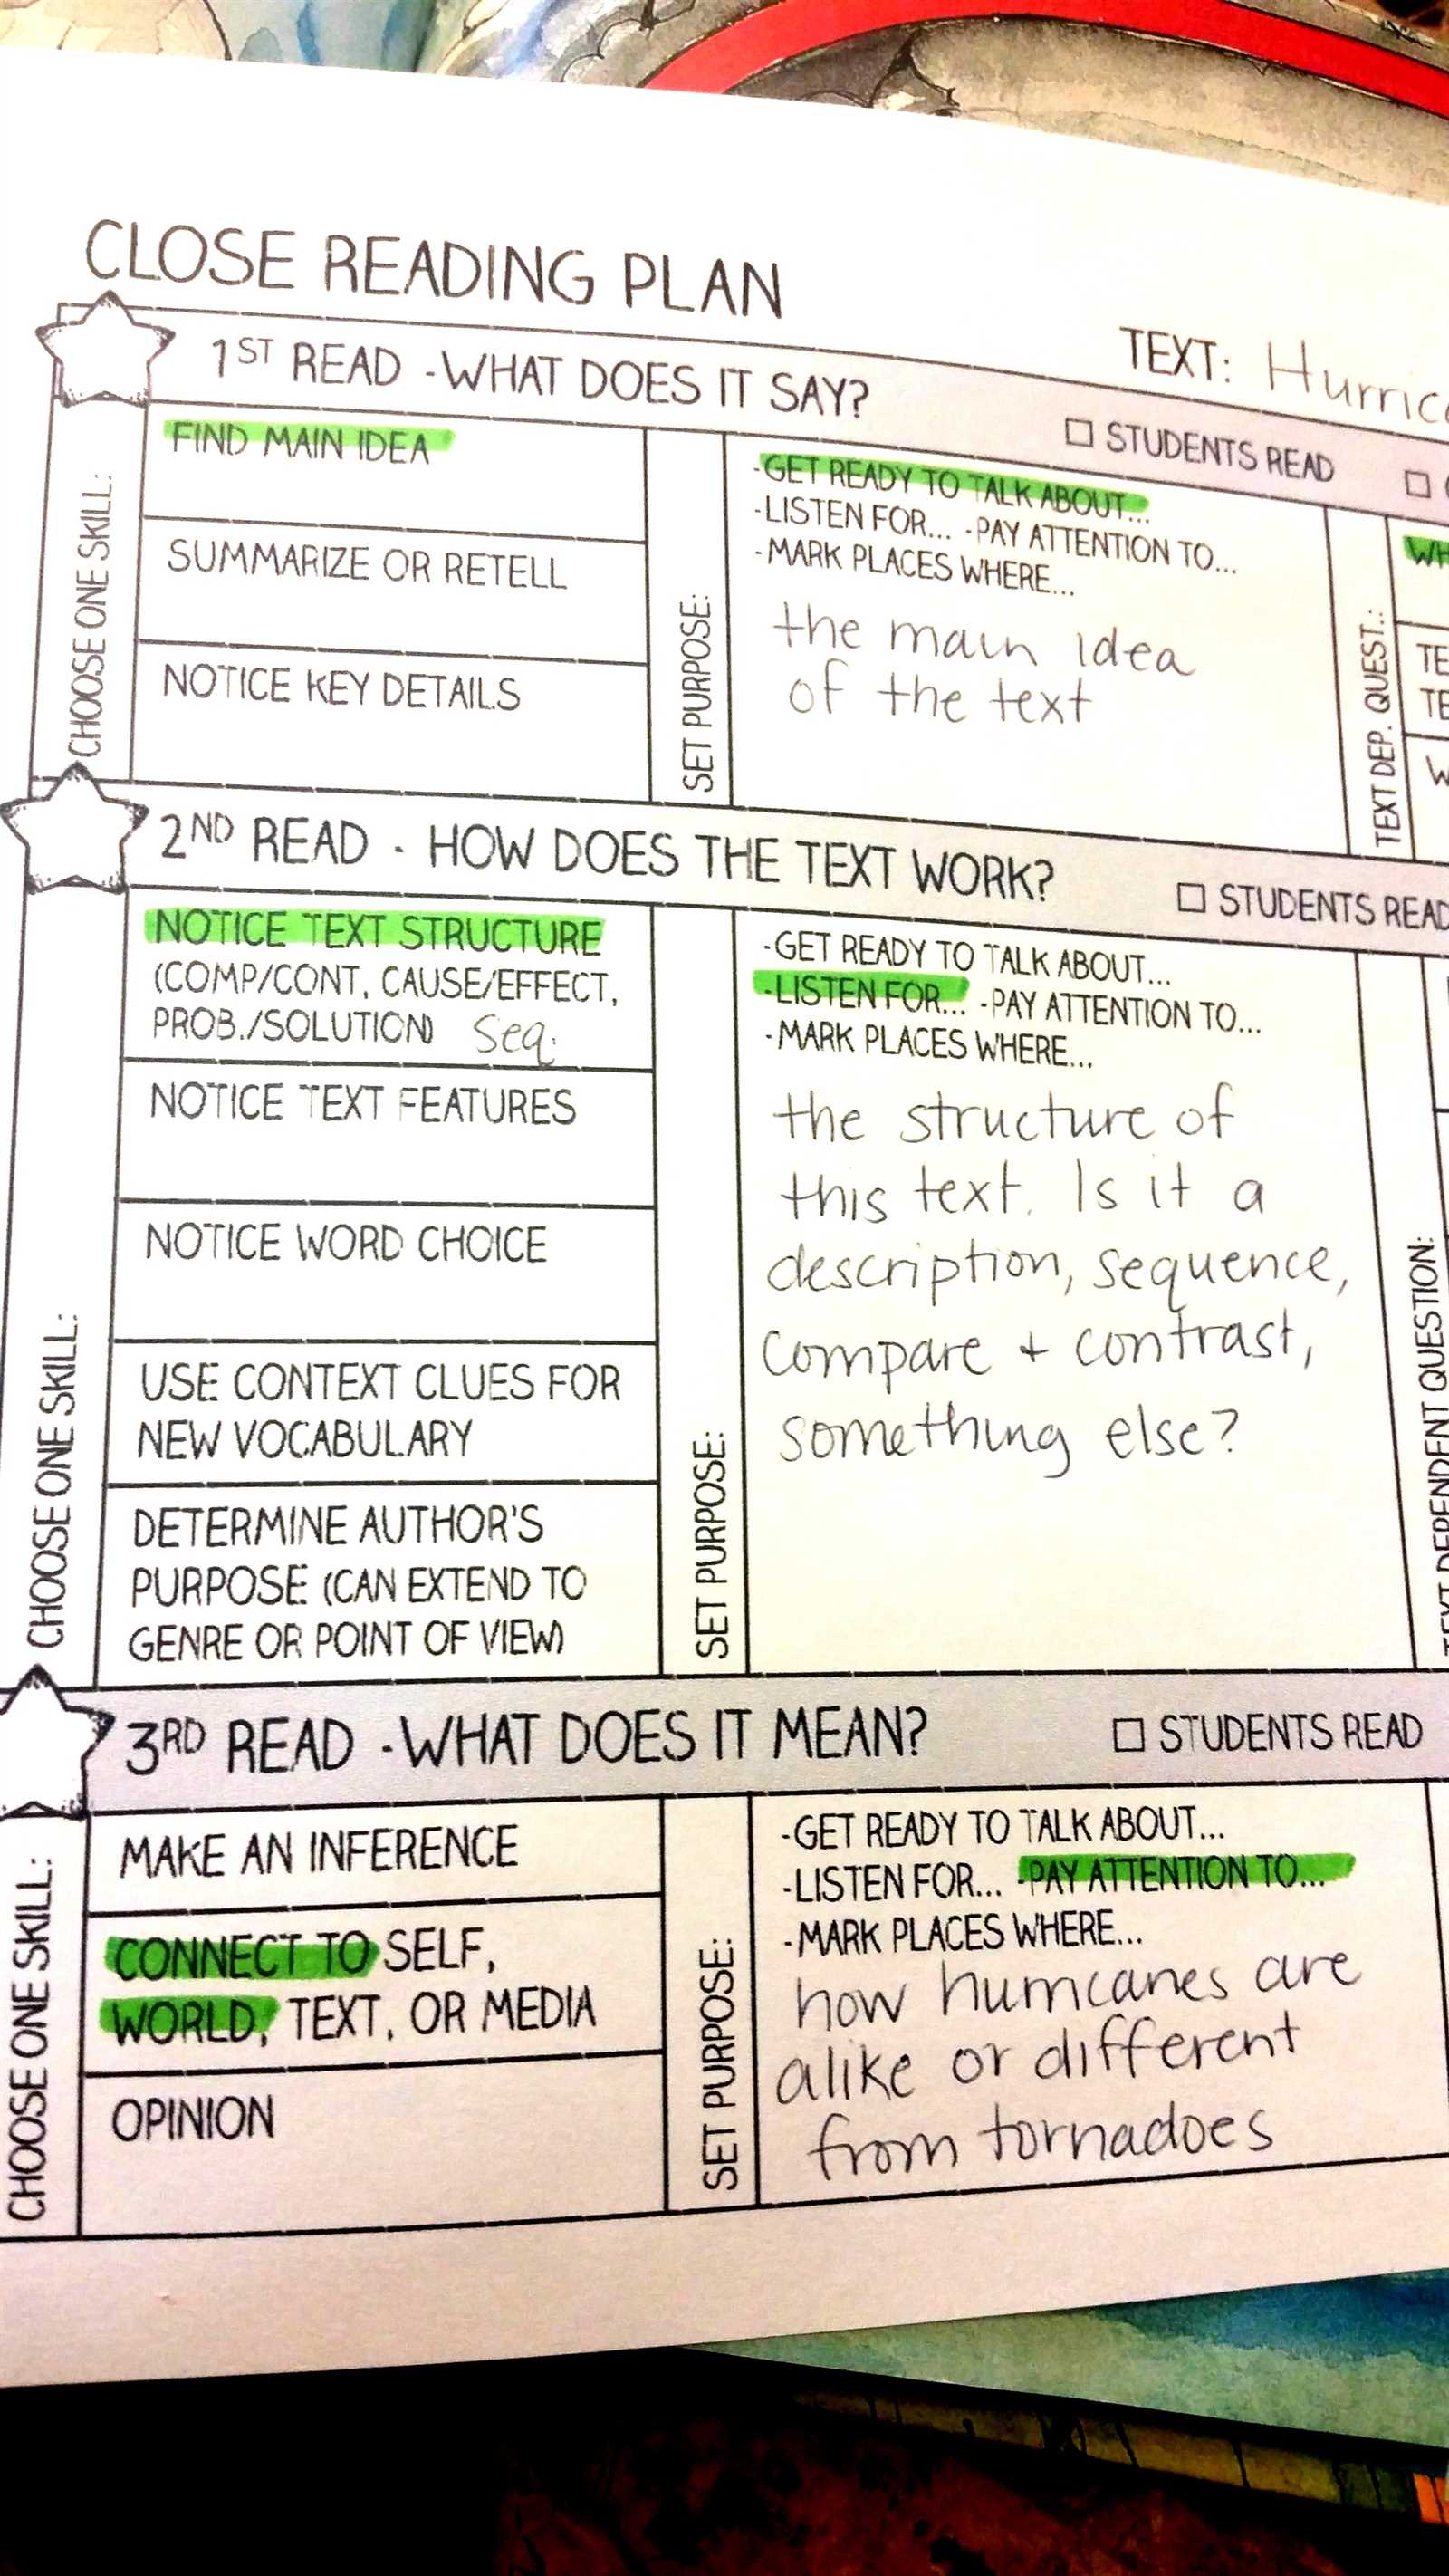 CLOSE READING PLAN
TEXT:
1ST READ - WHAT DOES IT SAY?
☐ STUDENTS READ
☐
CHOOSE ONE SKILL:
FIND MAIN IDEA
SUMMARIZE OR RETELL
NOTICE KEY DETAILS
SET PURPOSE:
-GET READY TO TALK ABOUT...
-LISTEN FOR... -PAY ATTENTION TO...
-MARK PLACES WHERE...
the main idea
of the text
TEXT DEP. QUEST.:
2ND READ - HOW DOES THE TEXT WORK?
☐ STUDENTS READ
CHOOSE ONE SKILL:
NOTICE TEXT STRUCTURE
(COMP/CONT, CAUSE/EFFECT,
PROB./SOLUTION) Seq.
NOTICE TEXT FEATURES
NOTICE WORD CHOICE
USE CONTEXT CLUES FOR
NEW VOCABULARY
DETERMINE AUTHOR'S
PURPOSE (CAN EXTEND TO
GENRE OR POINT OF VIEW)
SET PURPOSE:
-GET READY TO TALK ABOUT...
-LISTEN FOR... -PAY ATTENTION TO...
-MARK PLACES WHERE...
the structure of
this text. Is it a
description, sequence,
compare + contrast,
something else?
TEXT DEPENDENT QUESTION:
3RD READ - WHAT DOES IT MEAN?
☐ STUDENTS READ
CHOOSE ONE SKILL:
MAKE AN INFERENCE
CONNECT TO SELF,
WORLD, TEXT, OR MEDIA
OPINION
SET PURPOSE:
-GET READY TO TALK ABOUT...
-LISTEN FOR... -PAY ATTENTION TO...
-MARK PLACES WHERE...
how hurricanes are
alike or different
from tornadoes